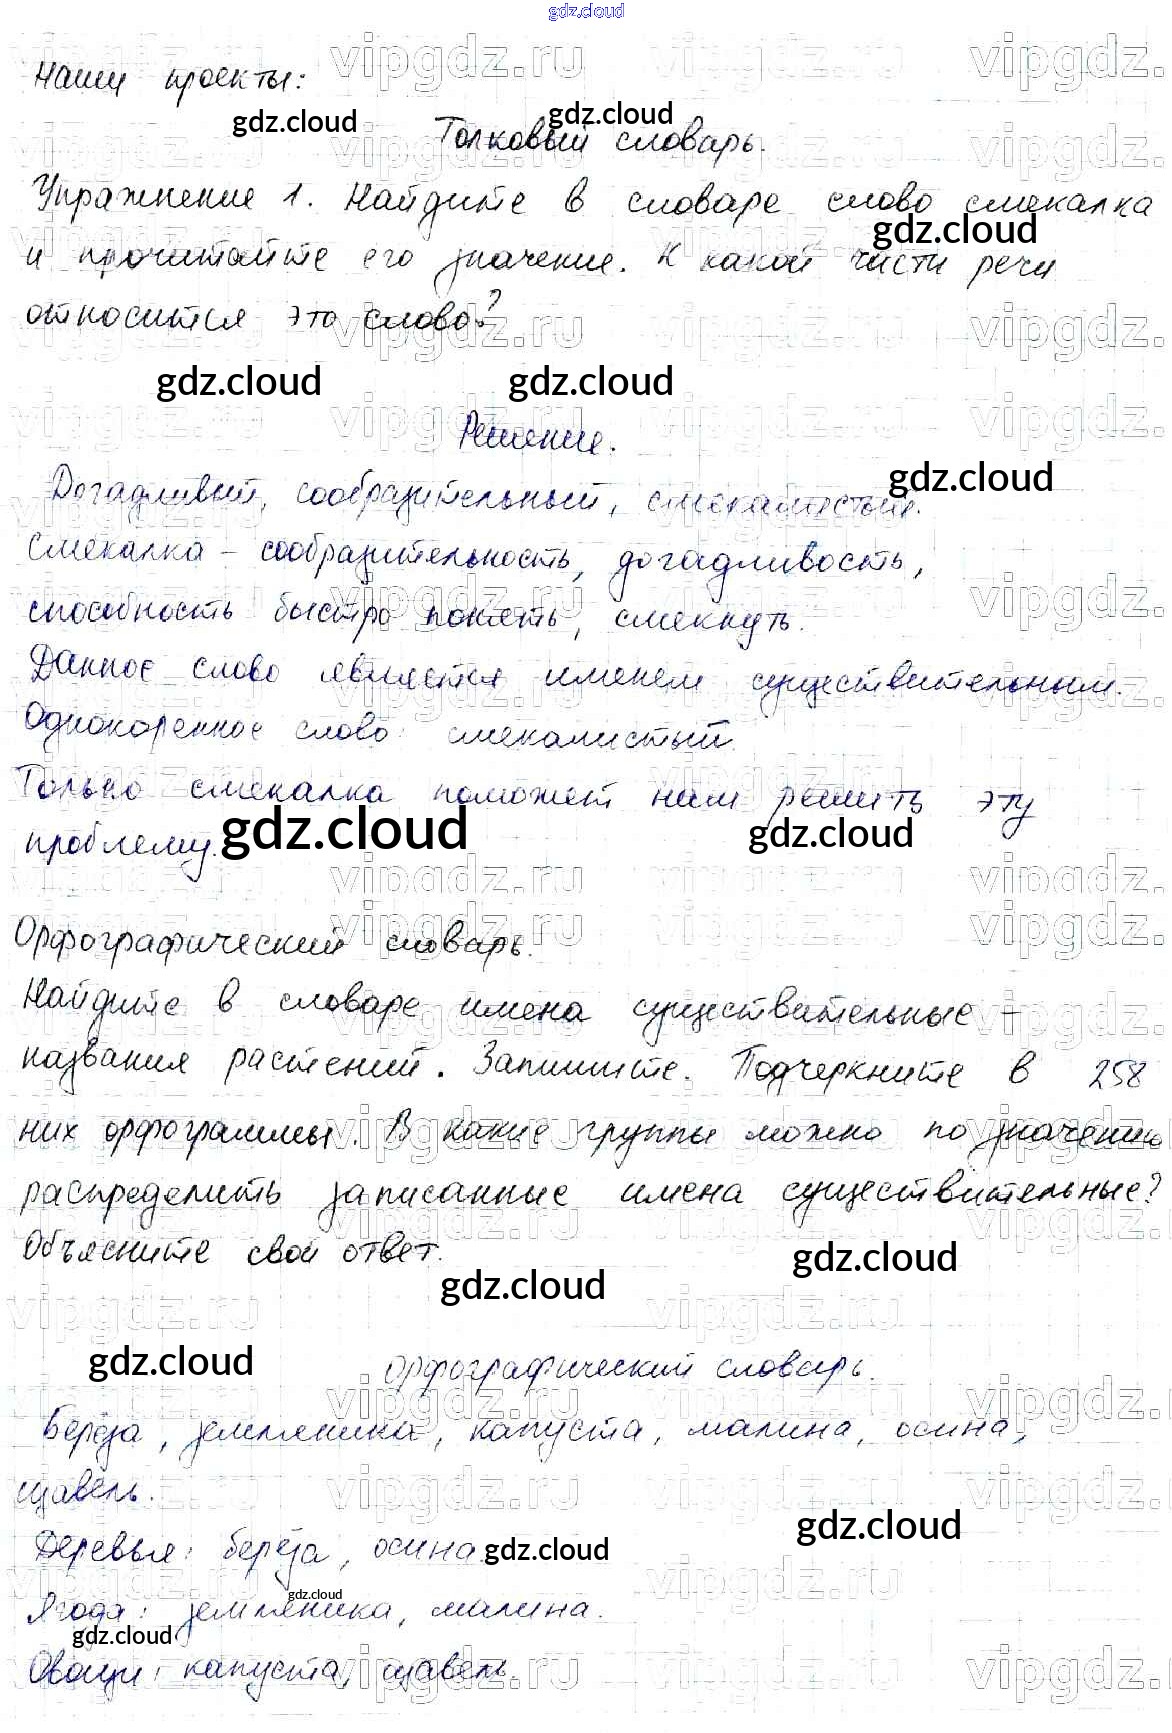 gdz.cloud
Наши проекты:
Толковый словарь.
Упражнение 1. Найдите в словаре слово смекалка
и прочитайте его значение. К какой части речи
относится это слово?
Решение.
Догадливый, сообразительный, смекалистый.
Смекалка – сообразительность, догадливость,
способность быстро понять, смекнуть.
Данное слово является именем существительным.
Однокоренное слово: смекалистый.
Только смекалка поможет нам решить эту
проблему.
Орфографический словарь.
Найдите в словаре имена существительные –
названия растений. Запишите. Подчеркните в 258
них орфограммы. В какие группы можно по значению
распределить записанные имена существительные?
Объясните свой ответ.
Орфографический словарь.
Берёза, земляника, капуста, малина, осина,
щавель.
Деревья: берёза, осина.
Ягода: земляника, малина.
Овощи: капуста, щавель.